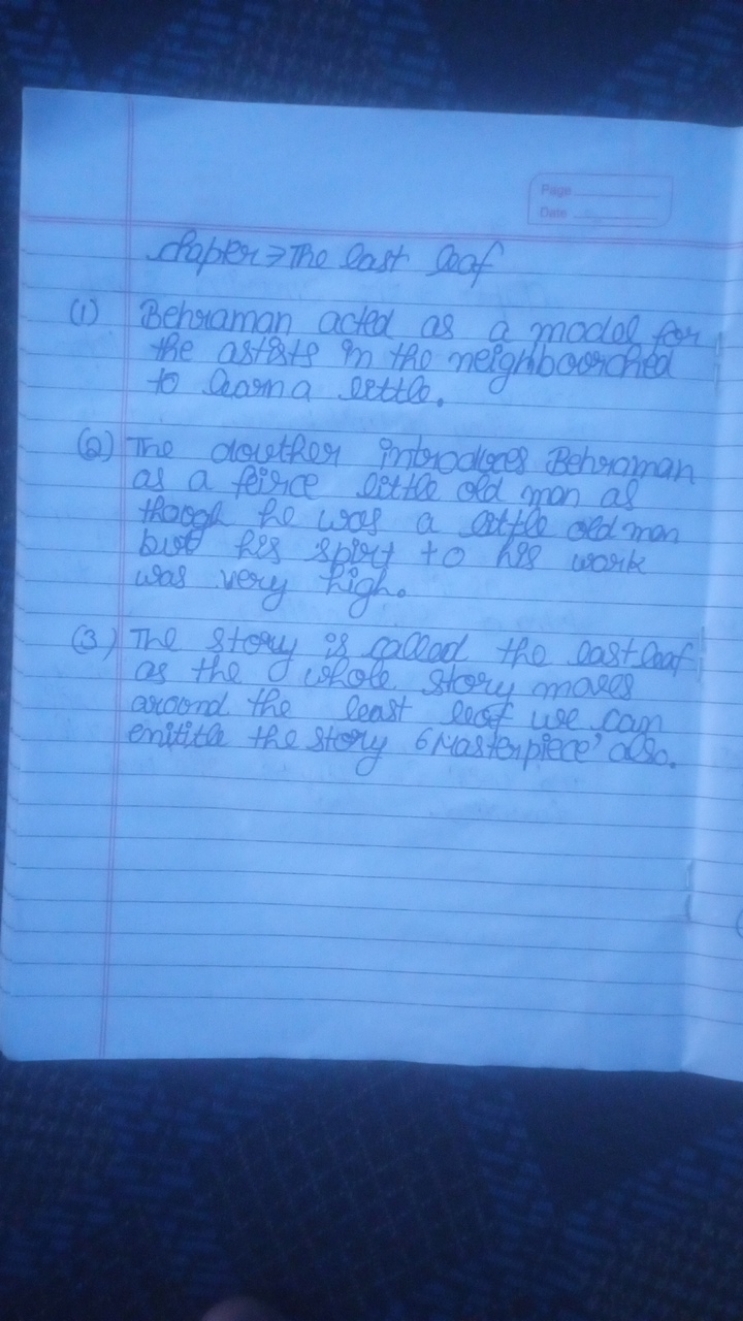 Page
Date
Chaper → The last leaf
(1) Behraman acted as a model for
the astists in the neighboorched
to learn a little.
(2) The douther introduces Behraman
as a feirce little old man as
though he was a little old man
but his spiry to his work
was very high.
(3) The story is called the last leaf
as the whole story moves
around the least leaf we can
enititle the story 'Masterpiece' also.